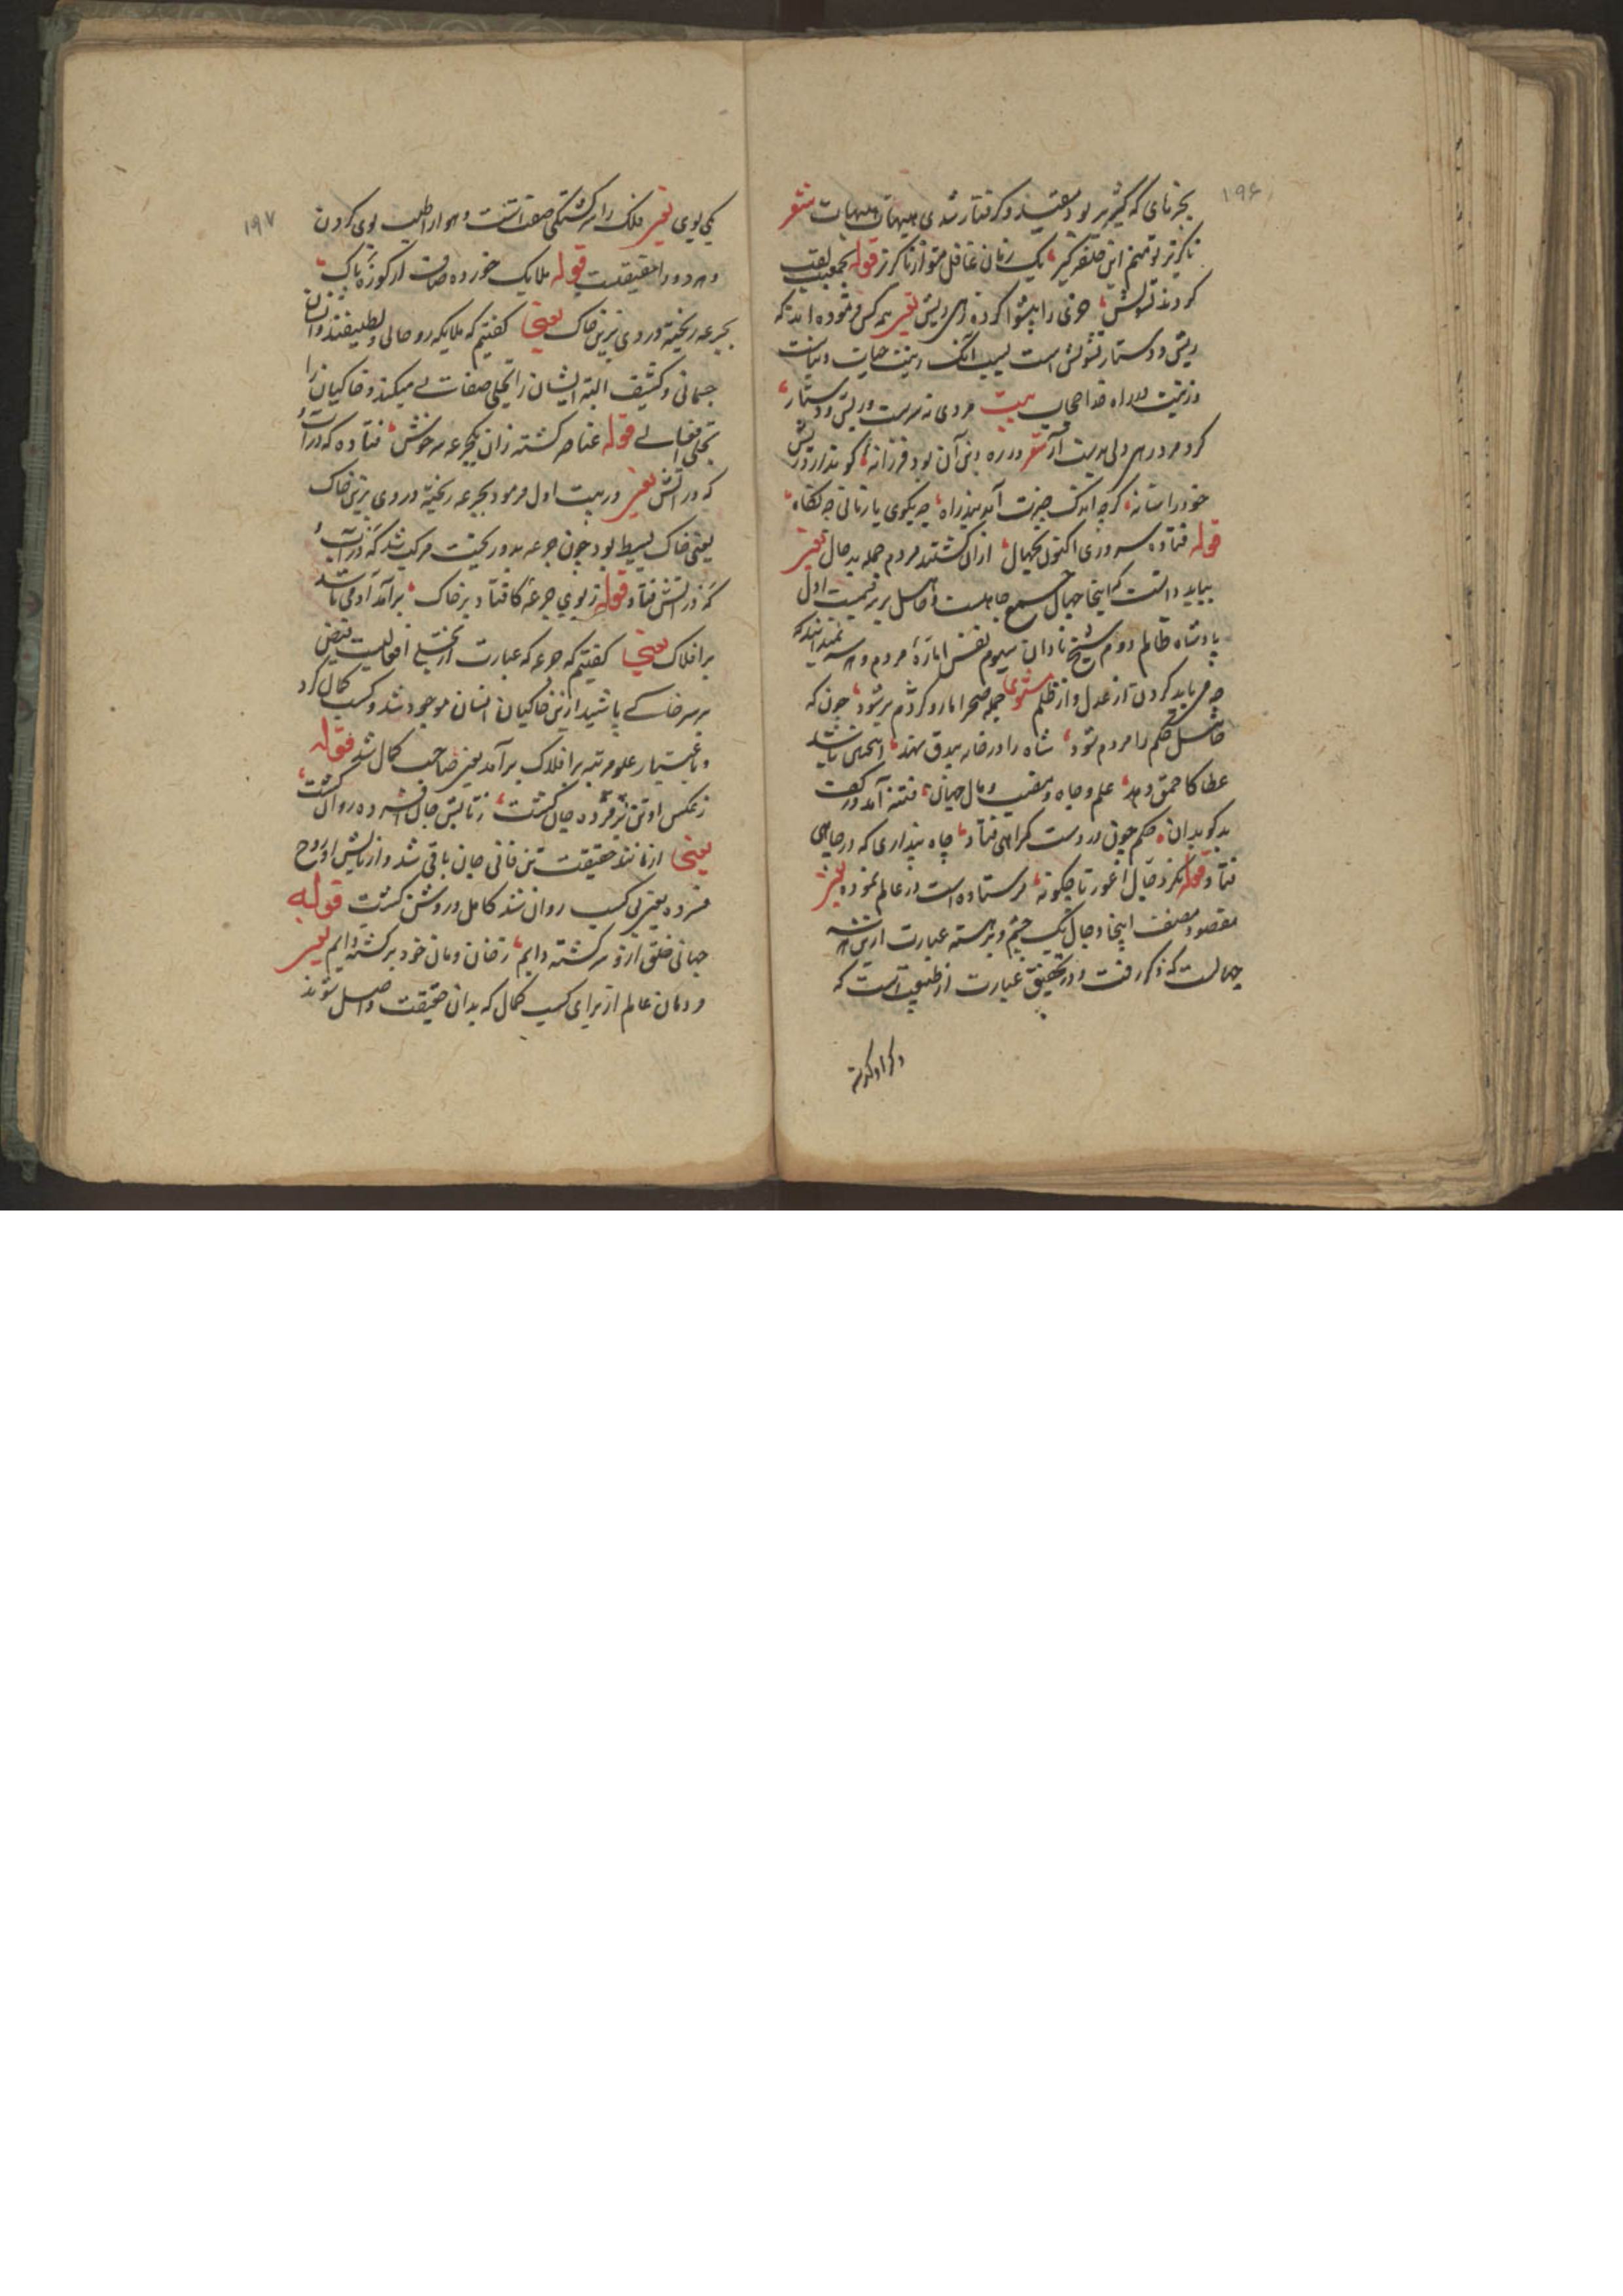 ۱۹۶
بجز نامی که گیرم بر تو و مقید و گرفتار شدی هیهات هیهات شعر
ناگزیر تو منم این حلقه گیر یک زمان غافل مشو از ناگزیر قوله بجمعیت لقب
کردند تشویش خری را پیشوا کرده زهی ریش یعنی همه کس فرموده اند که
ریش و دستار تشویش است بسبب آنک زینت حیات دنیاست
و زینت در راه خدا حجاب بیت مردی نه بریست و ریش و دستار
گرد مرد رهی ولی بدست آر شعر در ره دین آن بود فرزانه کو ندارد ریش
خود را شانه گرچه اندک چیزت آمد بند راه چه بکوی یا زمانی چه نگاه
قوله فتاده سروری اکنون بجهال ازان گشتند مردم جمله بدحال یعنی
بباید دانست که اینجا جهال جمع جاهلست و جاهل بر سه قسمت اول
پادشاه ظالم دوم شیخ نادان سیوم نفس اماره مردم و هر سه نمیدانند که
چه می باید کردن از عدل و از ظلم مثنوی جمله صحرا مار و کژدم پر شود چون که
جاهل حکم را مردم شود شاه را در خانه بیدق نهند اینچنین باشد
عطا کاحمق دهد علم و جاه و منصب و مال جهان فتنه آمد در کف
بدگوهران حکم چون در دست گمراهی فتاد چاه پنداری که در چاهی
فتاد قوله نگر دجال اعور تا چگونه فرستاده است در عالم نمونه یعنی
مقصود مصنف اینجا دجال یک چشم و خر بسته عبارت ازین هر سه
جهالست که ذکر رفت و در تحقیق عبارت از طبیعتست که
۱۹۷
یکی بوی یعنی فلک را سرگشتگی صفتست و هوا را طلب بوی کردن
و هر دو را حقیقت قوله ملایک خورده صاف از کوزه پاک
بجرعه ریخته دردی برین خاک یعنی گفتیم که ملایکه روحانی و لطیفند و انسان
جسمانی و کثیف البته ایشان را تجلی صفات لی میکند و خاکیان را
تجلی افعالی قوله عناصر گشته زان یکجرعه سرخوش فتاده گه در آب و
گه در آتش یعنی در بیت اول فرمود بجرعه ریخته دردی برین خاک
یعنی خاک بسیط بود چون جرعه بدو ریخت مرکب شد گه در آب و
گه در آتش فتاد قوله ز بوی جرعه کافتاد بر خاک برآمد آدمی تا شد
بر افلاک یعنی گفتیم که جرعه که عبارت از تجلی افعالیست فیضی
بر سر خاکی پاشید ازین خاکیان انسان موجود شد و کسب کمال کرد
و باعتبار علو مرتبه بر افلاک برآمد یعنی صاحب کمال شد قوله
ز عکس او تن پژمرده جان گشت ز تابش جان افسرده روان گشت
یعنی از مانند حقیقت تن فانی جان باقی شد و از تابش او روح
فسرده یعنی بی کسب روان شد کامل و روشن گشت قوله
جهانی خلق ازو سرگشته دایم ز خان و مان خود برگشته دایم یعنی
مردمان عالم از برای کسب کمال که بدان حقیقت واصل شوند